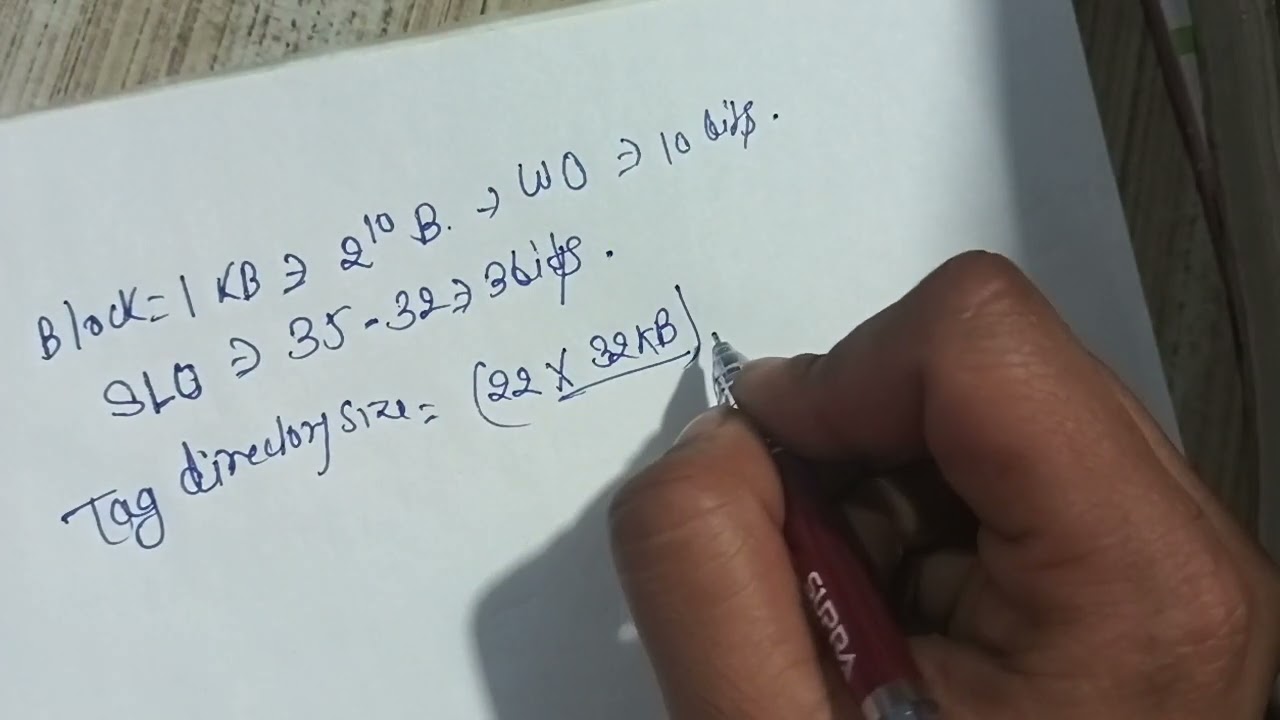 Block = 1 KB ⇒ 2^10 B. → WO ⇒ 10 bits.
SLO ⇒ 35 - 32 ⇒ 3 bits.
Tag directory size = (22 X 32KB)
SUPRA